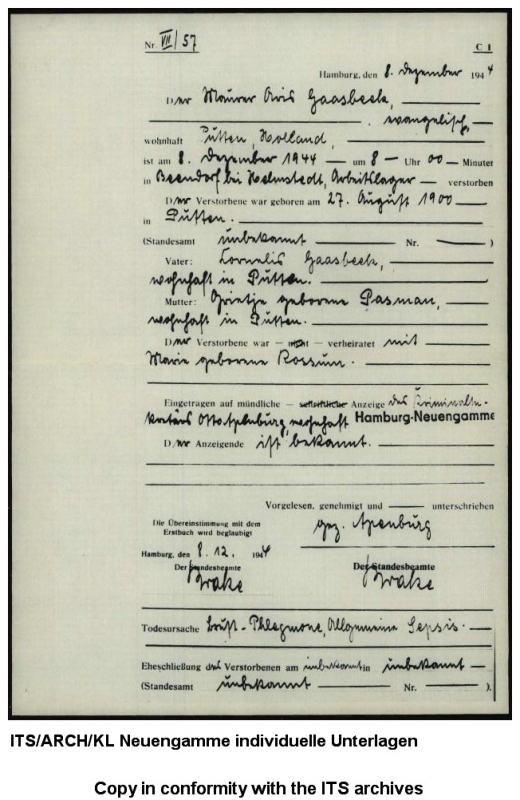 Nr. VII/57 C 1
Hamburg, den 8. Dezember 1944
Der Maurer Aris Gaasbeek,
evangelisch,
wohnhaft Putten, Holland,
ist am 8. Dezember 1944 um 8 Uhr 00 Minuten
in Beendorf bei Helmstedt, Arbeitslager verstorben
Der Verstorbene war geboren am 27. August 1900
in Putten.
(Standesamt unbekannt Nr. )
Vater: Cornelis Gaasbeek,
wohnhaft in Putten.
Mutter: Grietje geborene Pasman,
wohnhaft in Putten.
Der Verstorbene war — nicht — verheiratet mit
Marie geborene Rossum.
Eingetragen auf mündliche — schriftliche Anzeige des Kriminalse-
kretärs Otto Apenburg, wohnhaft Hamburg-Neuengamme
Der Anzeigende ist bekannt.
Vorgelesen, genehmigt und unterschrieben
gez. Apenburg
Die Übereinstimmung mit dem
Erstbuch wird beglaubigt
Hamburg, den 8. 12. 1944
Der Standesbeamte Der Standesbeamte
Brake Brake
Todesursache Brust-Phlegmone, Allgemeine Sepsis.
Eheschließung des Verstorbenen am unbekannt in unbekannt
(Standesamt unbekannt Nr. ).
ITS/ARCH/KL Neuengamme individuelle Unterlagen
Copy in conformity with the ITS archives